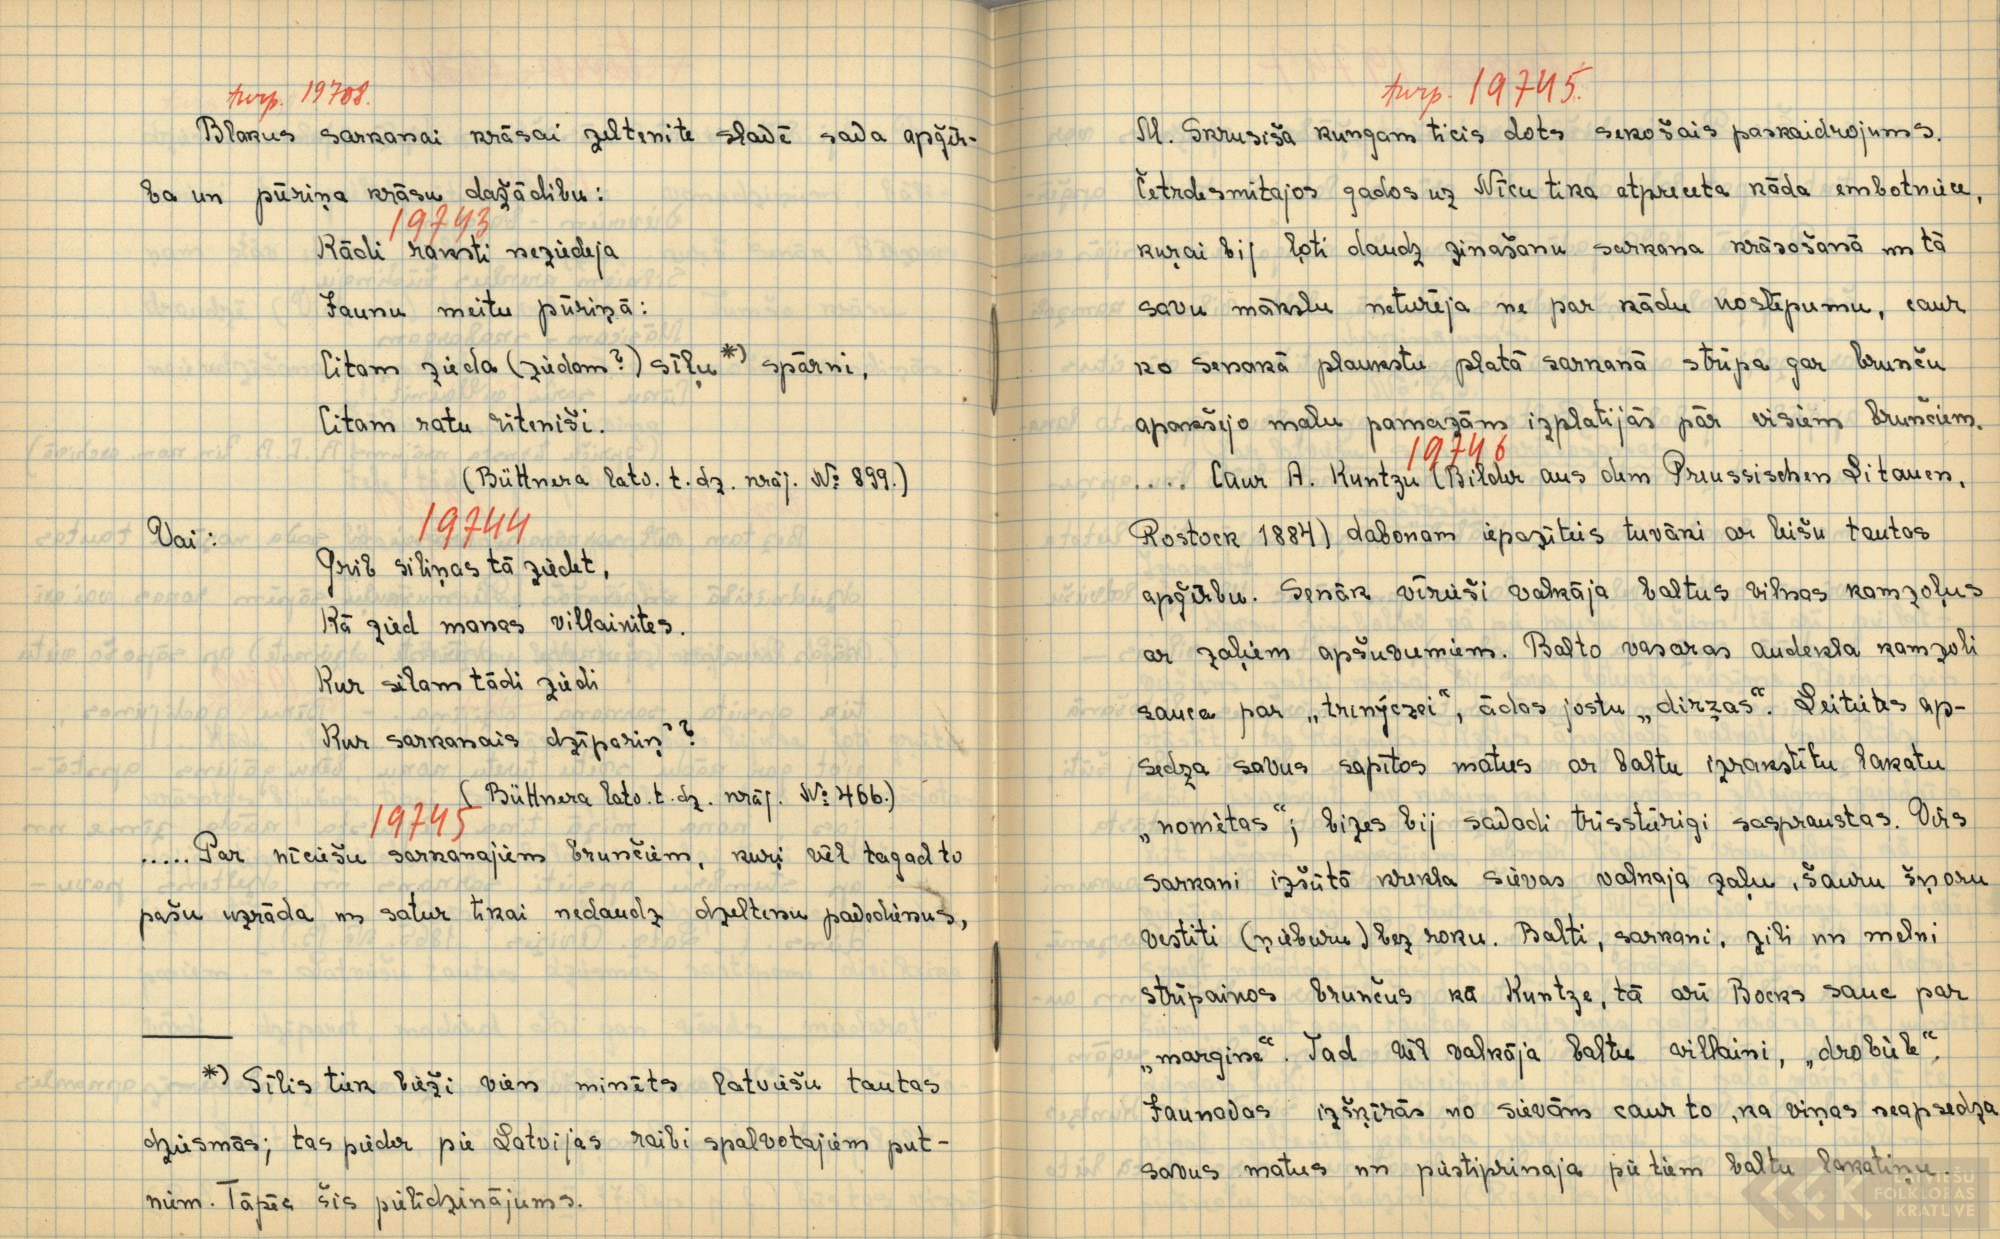 turp. 19708.
Blakus sarkanai krāsai zeltenite slavē sava apģēr-
ba un pūriņa krāsu dažādibu:
19743
Kādi raksti neziedeja
Jaunu meitu pūriņā:
Citam zieda (ziedam?) sīļu *) spārni,
Citam ratu riteniši.
(Büttnera latv. t. dz. krāj. № 899.)
19744
Vai:
Grib siliņas tā ziedet,
Kā zied manas villainites.
Kur silam tādi ziedi
Kur sarkanais dzīpariņ'?
(Büttnera latv. t. dz. krāj. № 466.)
19745
..... Par nīciešu sarkanajiem brunčiem, kuŗi vēl tagad to
pašu uzrāda un satur tikai nedaudz dzeltenu pavedienus,
*) Sīlis tiek bieži vien minēts latviešu tautas
dziesmās; tas pieder pie Latvijas raibi spalvotajiem put-
niem. Tāpēc šis pielīdzinājums.
turp. 19745.
M. Skrusiša kungam ticis dots sekošais paskaidrojums.
Četrdesmitajos gados uz Nīcu tika atpreceta kāda embotniece,
kuŗai bij ļoti daudz zinašanu sarkana krāsošanā un tā
savu mākslu neturēja ne par kādu noslēpumu, caur
ko senakā plaukstu platā sarkanā strīpa gar brunču
apakšejo malu pamazām izplatijās pār visiem brunčiem.
19746
.... Caur A. Kuntzu (Bilder aus dem Preussischen Litauen,
Rostock 1884) dabonam iepazīties tuvāki ar leišu tautas
apģērbu. Senāk vīrieši valkāja baltus vilnas kamzoļus
ar zaļiem apšuvumiem. Balto vasaras audekla kamzoli
sauca par „trinýczei“, ādas jostu „dirżas“. Leitietes ap-
sedza savus sapītos matus ar baltu izrakstītu lakatu
„nomètas“; bizes bij savadi trīsstūrigi saspraustas. Virs
sarkani izšūtā krekla sievas valkaja zaļu, šauru šņoru
vestiti (ņieburu) bez roku. Balti, sarkani, zili un melni
strīpainos brunčus kā Kuntze, tā arī Bocks sauc par
„margine“. Tad vēl valkāja baltu villaini, „drobùle“.
Jaunavas izšķīrās no sievām caur to, ka viņas neapsedza
savus matus un piestiprinaja pie tiem baltu lakatiņu.
LATVIEŠU
FOLKLORAS
KRĀTUVE